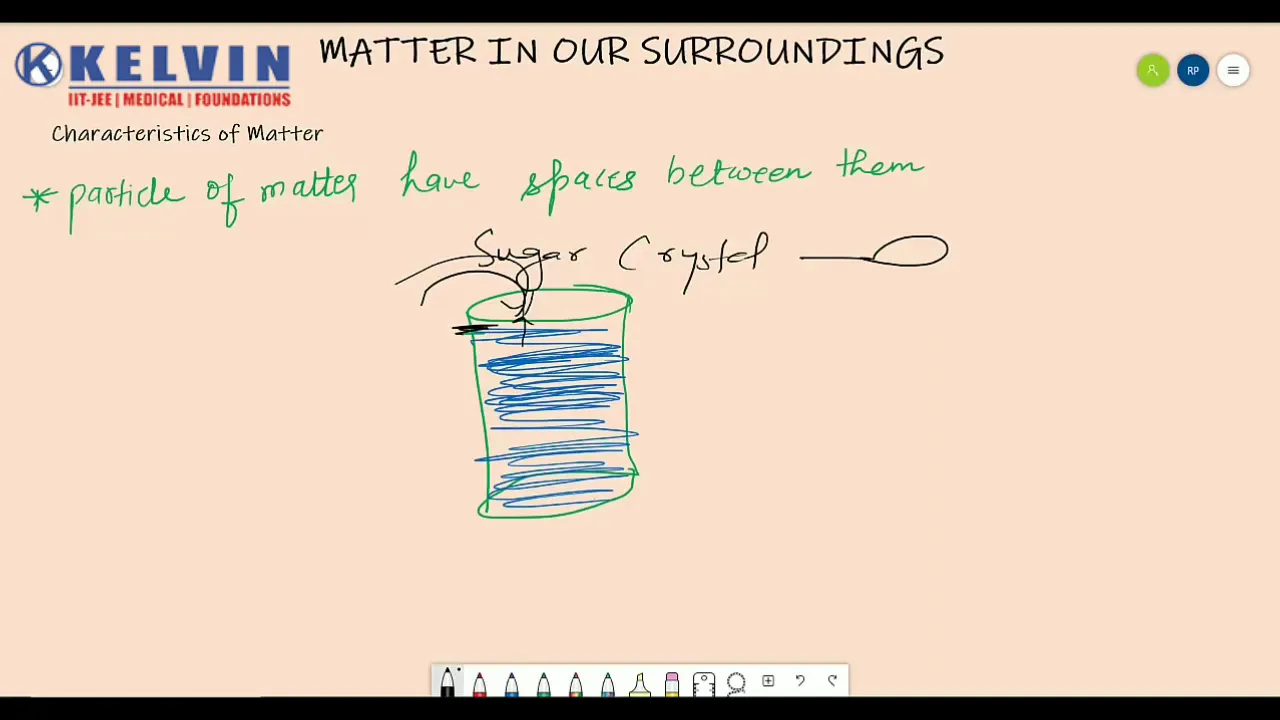 MATTER IN OUR SURROUNDINGS
KELVIN
IIT-JEE | MEDICAL | FOUNDATIONS
RP
Characteristics of Matter
* particle of matter have spaces between them
Sugar Crystal